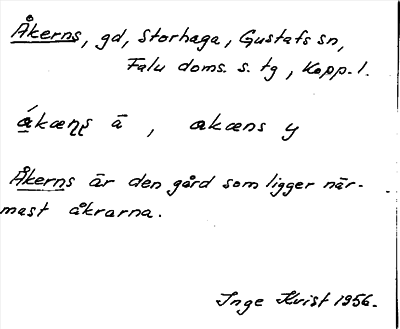 Åkerns, gd, Storhaga, Gustafs sn,
Falu doms. s. tg, Kopp. l.
ákæɳʂ ā, akæns y
Åkerns är den gård som ligger när-
mast åkrarna.
Inge Kvist 1956.